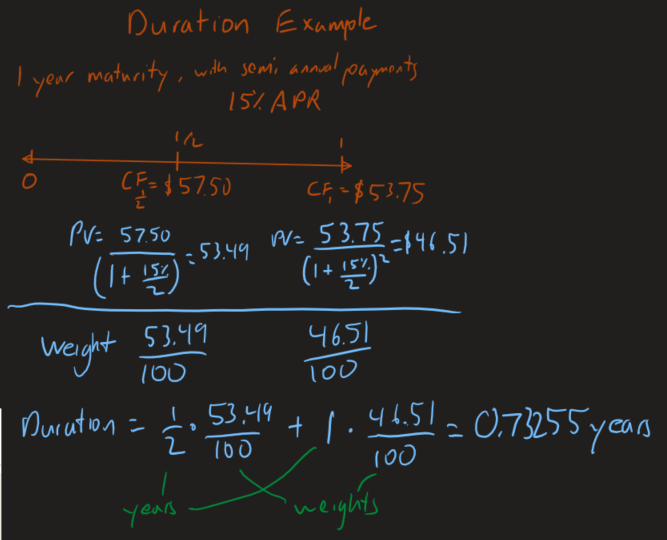 Duration Example
1 year maturity, with semi annual payments
15% APR
0 1/2 1
CF_{1/2} = $57.50 CF_1 = $53.75
PV = 57.50 / (1 + 15%/2) = 53.49 PV = 53.75 / (1 + 15%/2)^2 = $46.51
Weight 53.49/100 46.51/100
Duration = 1/2 · 53.49/100 + 1 · 46.51/100 = 0.73255 years
years weights